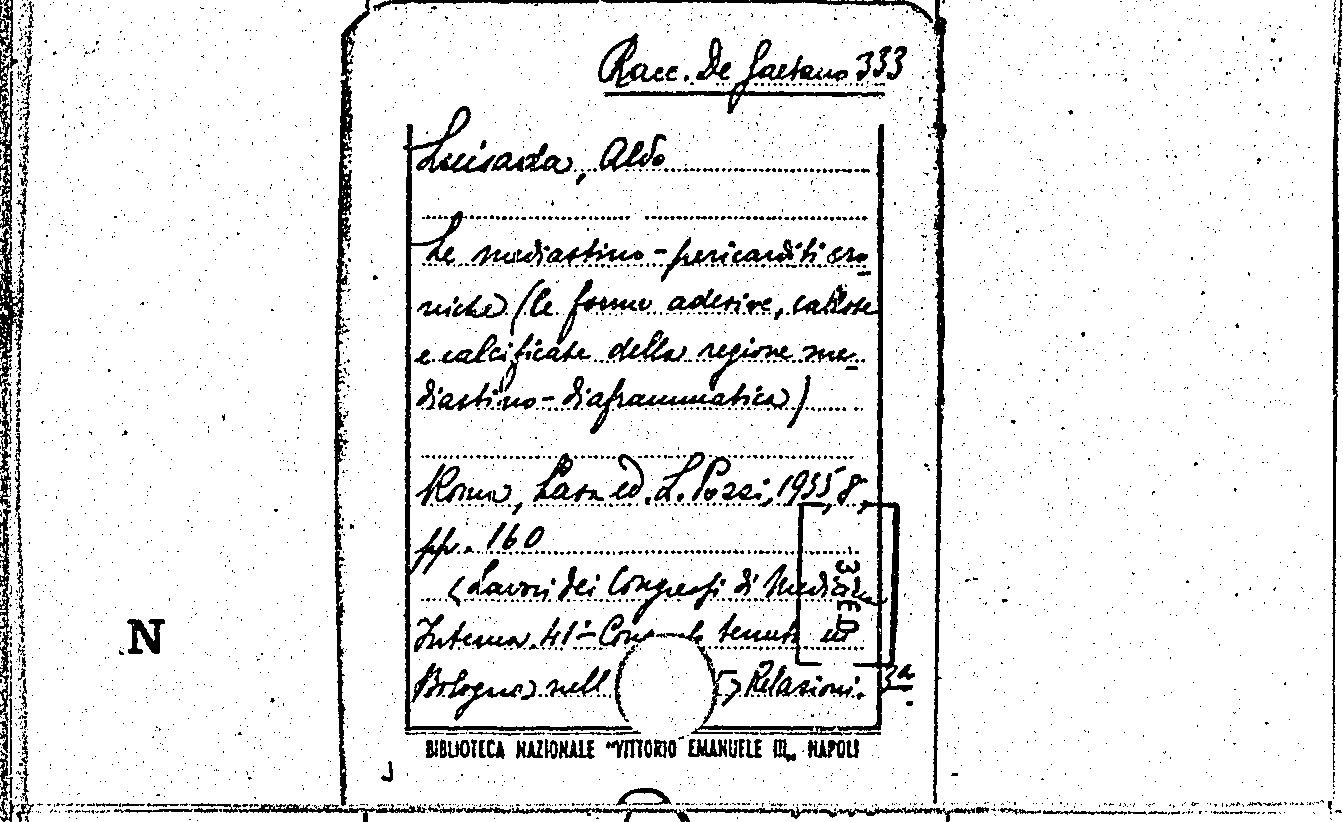 Racc. De Gaetano 333
Luisada, Aldo
Le mediastino-pericarditi cro-
niche (le forme adesive, callose
e calcificate della regione me-
diastino-diaframmatica)
Roma, Casa ed. L. Pozzi, 1935, 8,
pp. 160
(Lavori dei Congressi di Medicina
Interna. 41° tenuto in
Bologna nell Relazioni. 3a
N
BIBLIOTECA NAZIONALE "VITTORIO EMANUELE III" NAPOLI